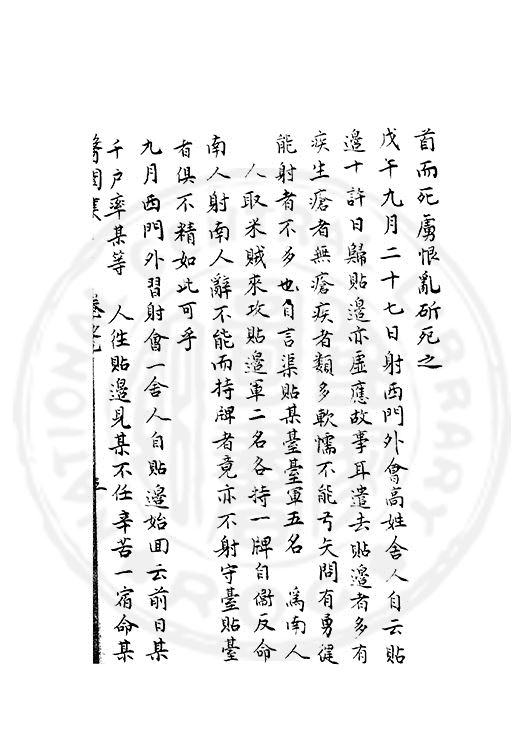 首而死虜恨亂斫死之
戊午九月二十七日射西門外會高姓舍人自云貼
邊十許日歸貼邊亦虛應故事耳遣去貼邊者多有
疾生瘡者無瘡疾者類多軟懦不能弓矢間有勇健
能射者不多也自言渠貼某臺臺軍五名 為南人
人取米賊來攻貼邊軍二名各持一牌自衞反命
南人射南人辭不能而持牌者竟亦不射守臺貼臺
者俱不精如此可乎
九月西門外習射會一舍人自貼邊始回云前日某
千戶率某等 人徃貼邊見某不任辛苦一宿命某